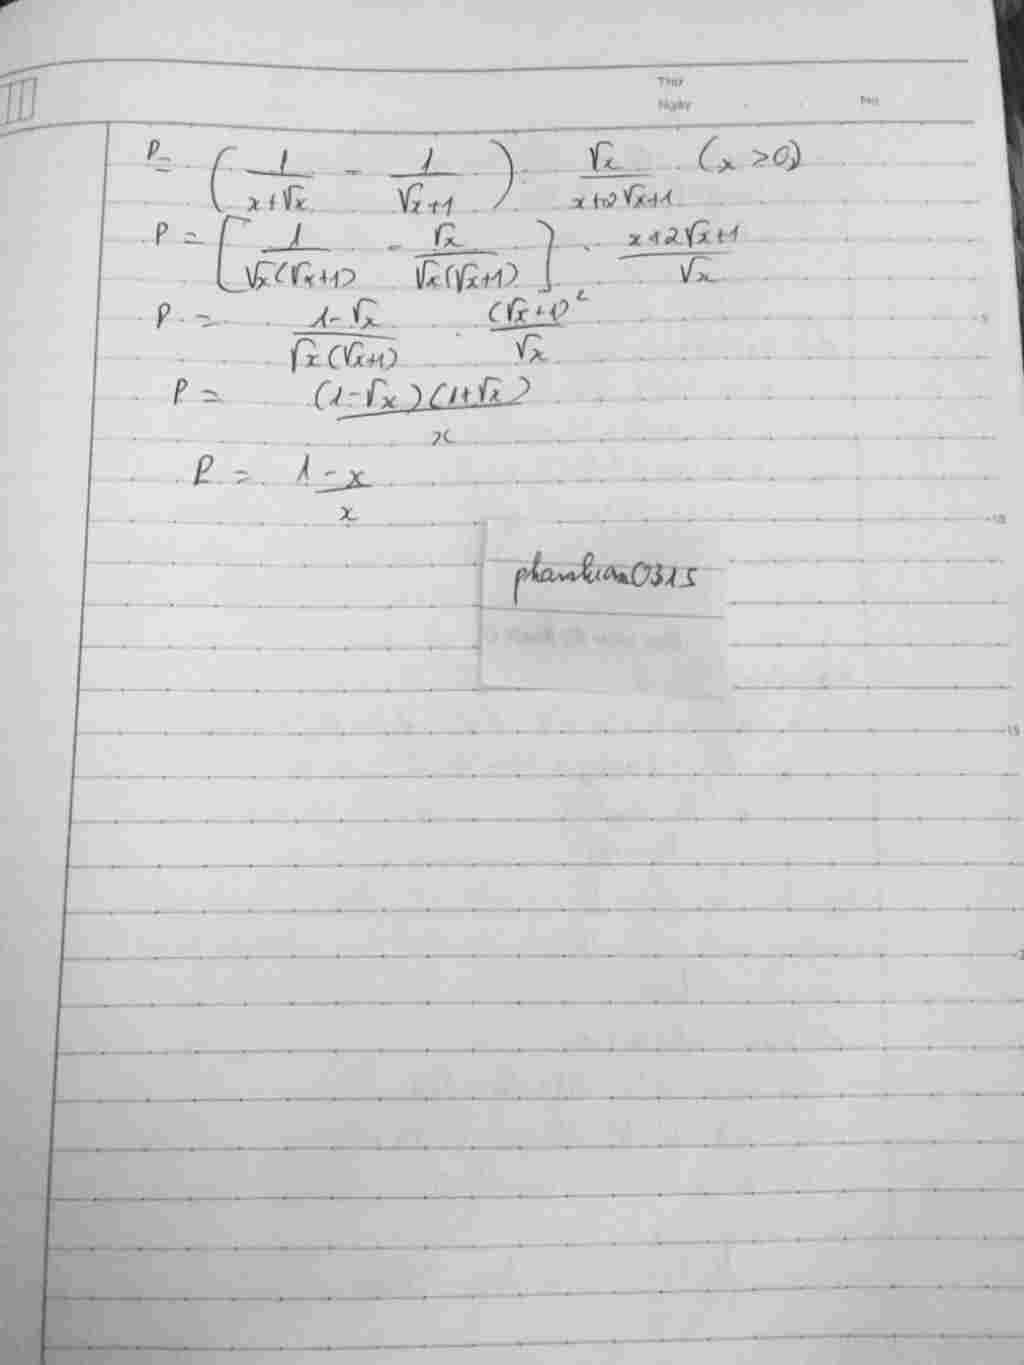 Thứ
Ngày No
P = ( 1/(x+√x) - 1/(√x+1) ) : √x/(x+2√x+1) (x > 0)
P = [ 1/(√x(√x+1)) - √x/(√x(√x+1)) ] . (x+2√x+1)/√x
P = (1-√x)/(√x(√x+1)) . (√x+1)²/√x
5
P = (1-√x)(1+√x)/x
P = (1-x)/x
10
15